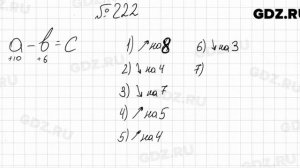 № 222
GDZ.RU
a - b = c
+10 +6
1) ↗ на 8
2) ↘ на 4
3) ↘ на 7
4) ↗ на 5
5) ↗ на 4
6) ↘ на 3
7)